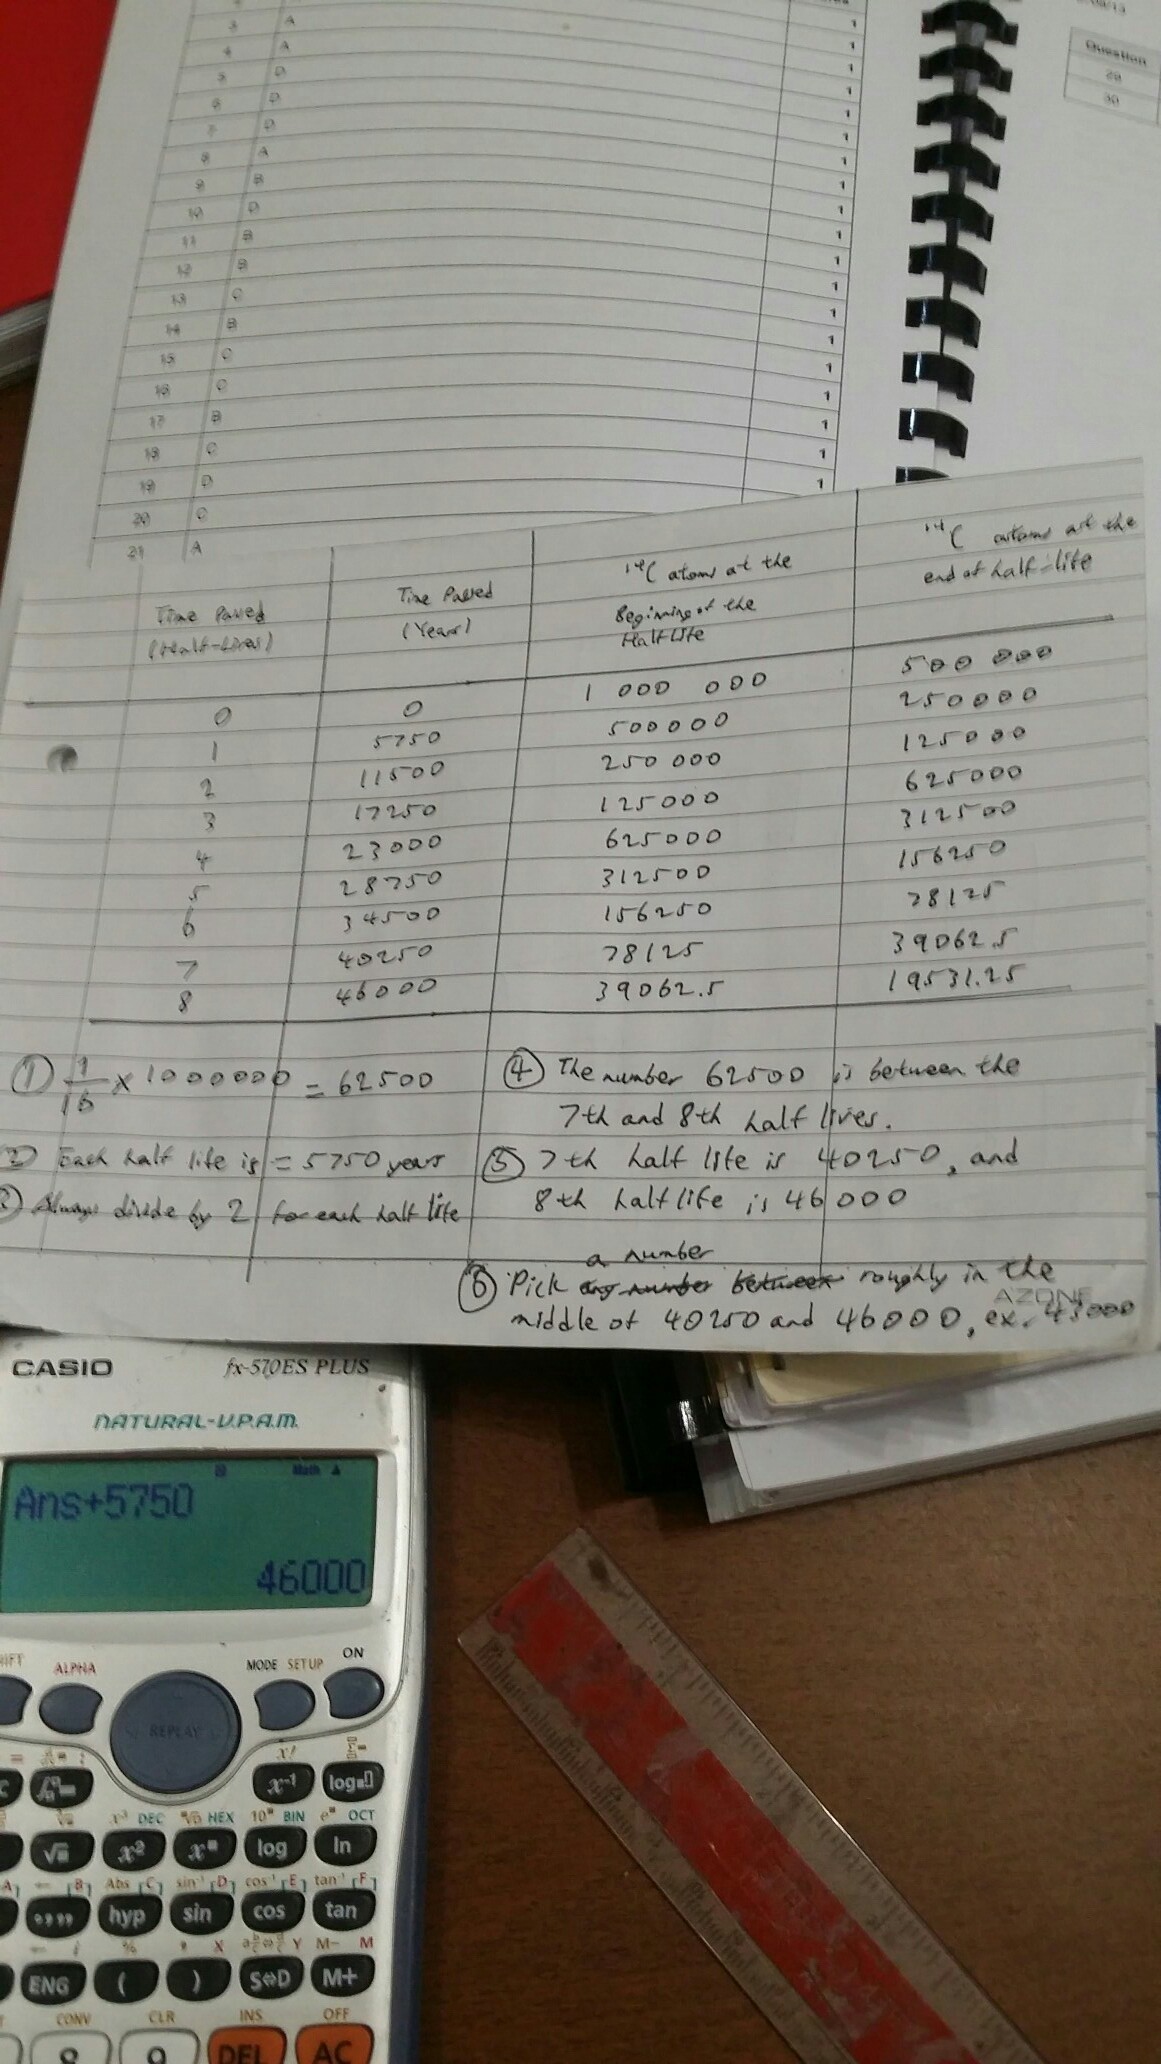 Question
29
30
3 A 1
4 A 1
5 D 1
6 D 1
7 D 1
8 A 1
9 B 1
10 D 1
11 B 1
12 B 1
13 C 1
14 B 1
15 C 1
16 C 1
17 B 1
18 C 1
19 D 1
20 C 1
21 A
Time Passed (Half-Lives)
Time Passed (Years)
14C atoms at the Beginning of the Half Life
14C atoms at the end of half-life
0 0 1 000 000 500 000
1 5750 500000 250000
2 11500 250 000 125000
3 17250 125000 625000
4 23000 625000 312500
5 28750 312500 156250
6 34500 156250 78125
7 40250 78125 39062.5
8 46000 39062.5 19531.25
① 1/16 x 1000000 = 62500
② Each half life is = 5750 years
③ Always divide by 2 for each half life
④ The number 62500 is between the
7th and 8th half lives.
⑤ 7th half life is 40250, and
8th half life is 46000
a number
⑥ Pick any number between roughly in the
middle of 40250 and 46000, ex. 43000
AZONE
CASIO fx-570ES PLUS
NATURAL-V.P.A.M.
Math ▲
Ans+5750
46000
ALPHA MODE SETUP ON
REPLAY
x! 
x⁻¹ log
x³ DEC HEX 10 BIN e OCT
√ x² x log ln
A B Abs C sin⁻¹ D cos⁻¹ E tan⁻¹ F
hyp sin cos tan
X Y M- M
ENG ( ) S⇔D M+
CONV CLR INS OFF
8 9 DEL AC